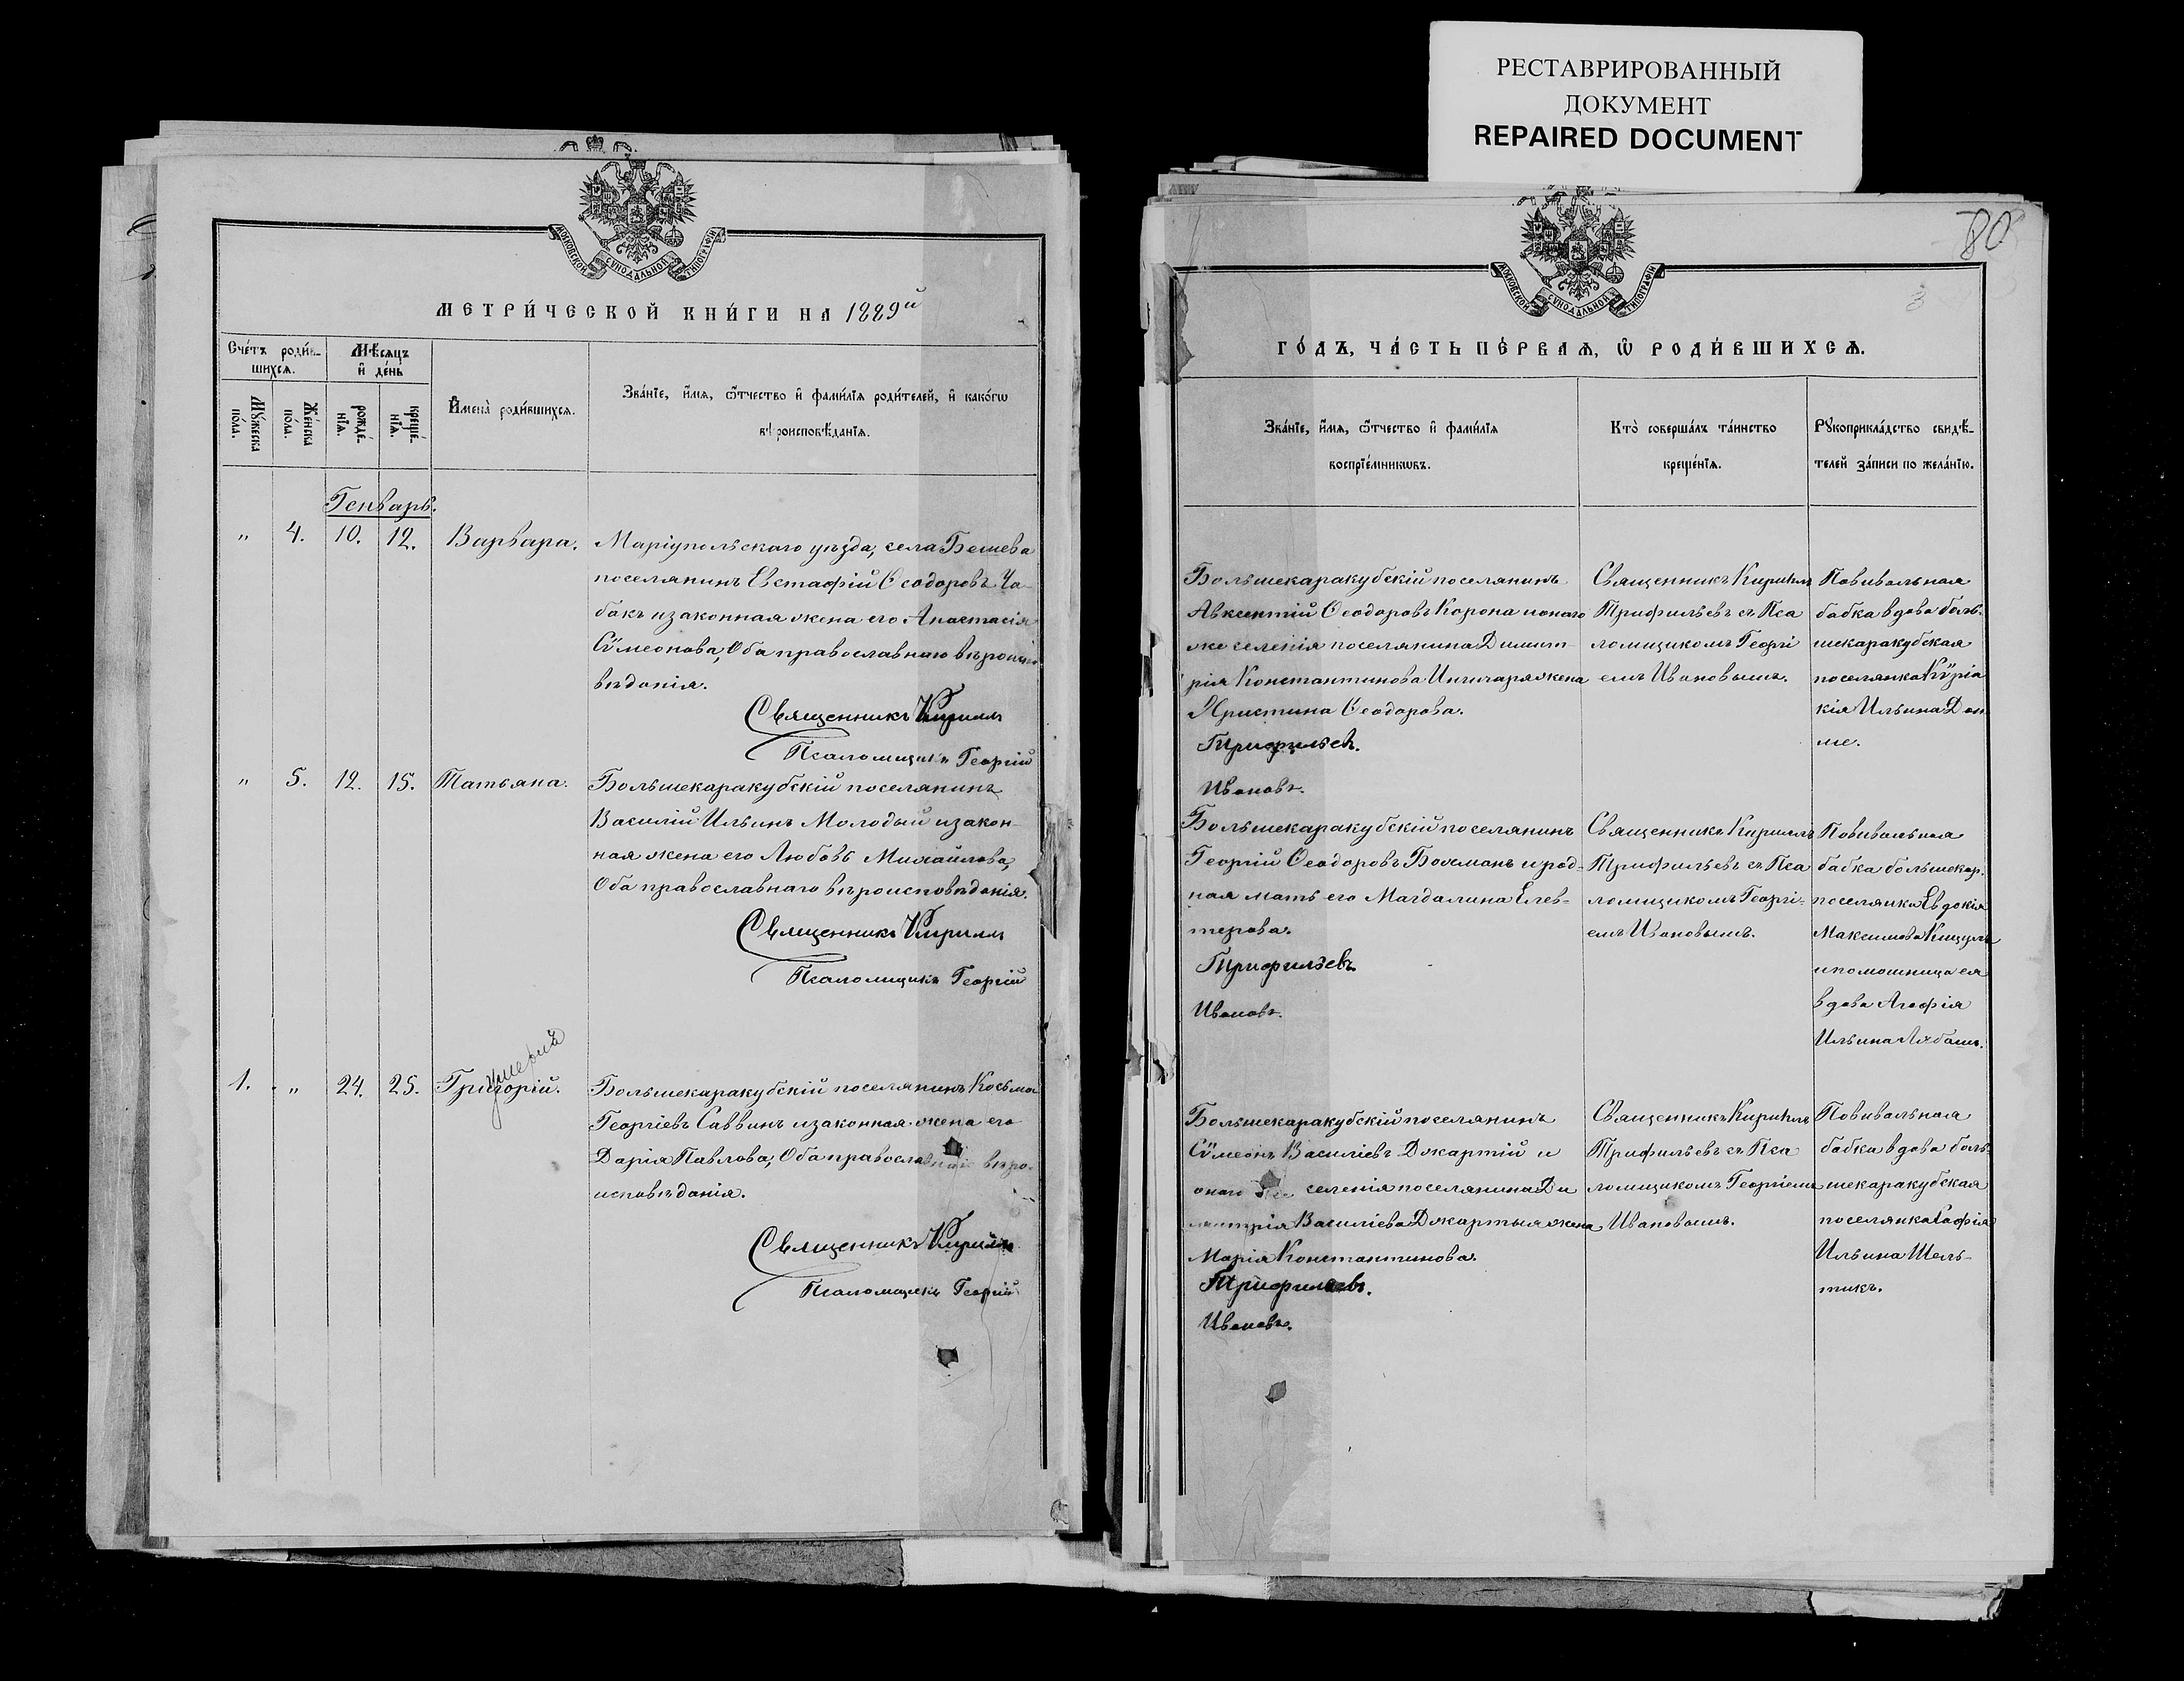 РЕСТАВРИРОВАННЫЙ
ДОКУМЕНТ
REPAIRED DOCUMENT
80
3
МОСКОВСКОЙ СѴНОДАЛЬНОЙ ТИПОГРАФІИ
МЕТРИ́ЧЕСКОЙ КНИ́ГИ НА 1889й
Сче́тъ роди́в-
шихсѧ.
Мꙋ́жеска
по́ла.
Же́нска
по́ла.
Мѣ́сѧцъ
и҆ де́нь
рожде́-
нїѧ.
креще́-
нїѧ.
И҆мена̀ роди́вшихсѧ.
Зва́нїе, и҆́мѧ, ѻ҆́тчество и҆ фами́лїѧ роди́телей, и҆ како́гѡ
вѣроисповѣ́данїѧ.
Генварь.
" 4. 10. 12. Варвара.
Маріупольскаго уѣзда, села Бешева
поселянинъ Евстафій Ѳеодоровъ Ча-
бакъ и законная жена его Анастасія
Сѵмеонова, Оба православнаго вѣроиспо-
вѣданія.
Священникъ Кириллъ
Псаломщикъ Георгій
" 5. 12. 15. Татьяна.
Большекаракубскій поселянинъ
Василій Ильинъ Молодый и закон-
ная жена его Любовь Михайлова,
Оба православнаго вѣроисповѣданія.
Священникъ Кириллъ
Псаломщикъ Георгій
умерла
1. " 24. 25. Григорій.
Большекаракубскій поселянинъ Косьма
Георгіевъ Саввинъ и законная жена его
Дарія Павлова, Оба православнаго вѣро-
исповѣданія.
Священникъ Кириллъ
Псаломщикъ Георгій
МОСКОВСКОЙ СѴНОДАЛЬНОЙ ТИПОГРАФІИ
ГО́ДЪ, ЧА́СТЬ ПЕ́РВАѦ, Ѡ҆ РОДИ́ВШИХСѦ.
Зва́нїе, и҆́мѧ, ѻ҆́тчество и҆ фами́лїѧ
воспрїе́мникѡвъ.
Кто̀ соверша́лъ та́инство
креще́нїѧ.
Рꙋкоприкла́дство свидѣ́-
телей за́писи по жела́нїю.
Большекаракубскій поселянинъ
Авксентій Ѳеодоровъ Корона и онаго
же селенія поселянина Димит-
рія Константинова жена
Христина Ѳеодорова.
Трифильевъ.
Ивановъ.
Священникъ Кириллъ
Трифильевъ съ Пса
ломщикомъ Георгі
емъ Ивановымъ.
Повивальная
бабка вдова боль-
шекаракубская
поселянка Кѵріа
кія Ильина
Большекаракубскій поселянинъ
Георгій Ѳеодоровъ Бохманъ и род-
ная мать его Магдалина Елев-
терова.
Трифильевъ.
Ивановъ.
Священникъ Кириллъ
Трифильевъ съ Пса
ломщикомъ Георгі-
емъ Ивановымъ.
Повивальная
бабка большекар.
поселянка Евдокія
Максимова
и помошница ея
вдова Агафія
Ильина
Большекаракубскій поселянинъ
Сѵмеонъ Василіевъ Джартій и
онаго же селенія поселянина Ди
митрія Василіева Джартыя жена
Марія Константинова.
Трифильевъ.
Ивановъ.
Священникъ Кириллъ
Трифильевъ съ Пса
ломщикомъ Георгіемъ
Ивановымъ.
Повивальная
бабка вдова боль-
шекаракубская
поселянка Софія
Ильина Шель-
тикъ.